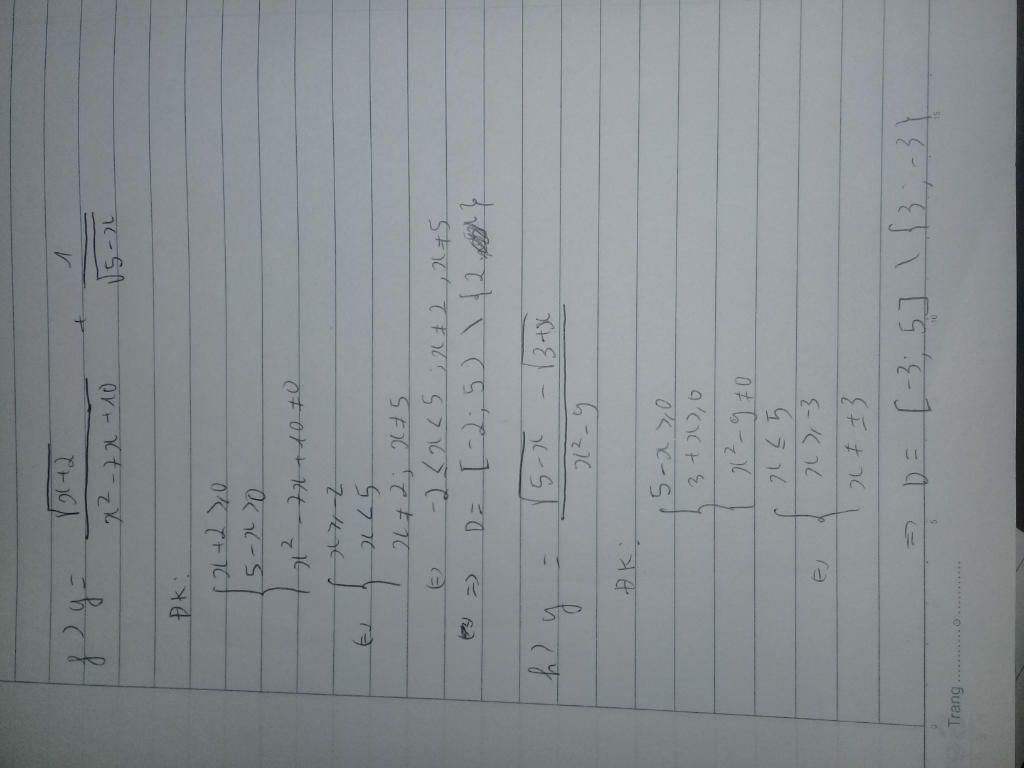 f) y = √(x+2) / (x² - 7x + 10) + 1 / √(5-x)
ĐK:
{ x+2 ≥ 0
5-x > 0
x² - 7x + 10 ≠ 0
(=) { x ≥ -2
x < 5
x ≠ 2; x ≠ 5
(=) -2 ≤ x < 5; x ≠ 2, x ≠ 5
=> D = [-2; 5) \ {2}
h) y = (√(5-x) - √(3+x)) / (x² - 9)
ĐK:
{ 5-x ≥ 0
3+x ≥ 0
x² - 9 ≠ 0
(=) { x ≤ 5
x ≥ -3
x ≠ ±3
=> D = [-3; 5] \ {3; -3}
Trang